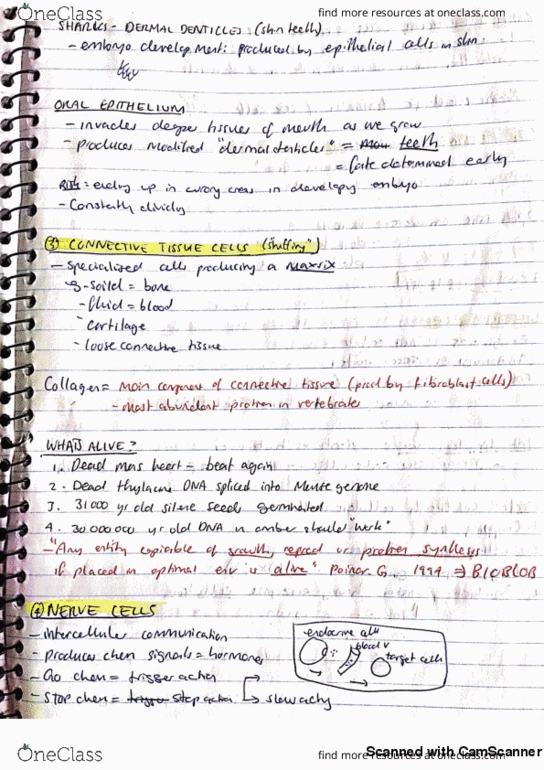 OneClass
find more resources at oneclass.com
SHARKS - DERMAL DENTICLES (skin teeth)
- embryo development: produced by epithelial cells in skin
ORAL EPITHELIUM
- invades deeper tissues of mouth as we grow
- produces modified "dermal denticles" = teeth
= fate determined early
= ending up in wrong area in developing embryo
- Constantly dividing
③ CONNECTIVE TISSUE CELLS ("stuffing")
- Specialised cells producing a MATRIX
- solid = bone
- fluid = blood
- cartilage
- loose connective tissue
Collagen = main component of connective tissue (prod by fibroblast cells)
- most abundant protein in vertebrates
WHATS ALIVE?
1. Dead mans heart - beat again
2. Dead thylacine DNA spliced into mouse genome
3. 31000 yr old silene seeds germinated
4. 30 000 000 yr old DNA in amber should "work"
- "Any entity capable of growth, reprod or protein synthesis
if placed in optimal env is alive" Poinar. G, 1994 ⇒ BIOBLOB
④ NERVE CELLS
- intercellular communication
- produces chem signals = hormones
- Go chem = trigger action
- STOP chem = trigger stop action
→ slow acting
endocrine cells
blood v
target cells
OneClass
find more resources at oneclass.com
Scanned with CamScanner